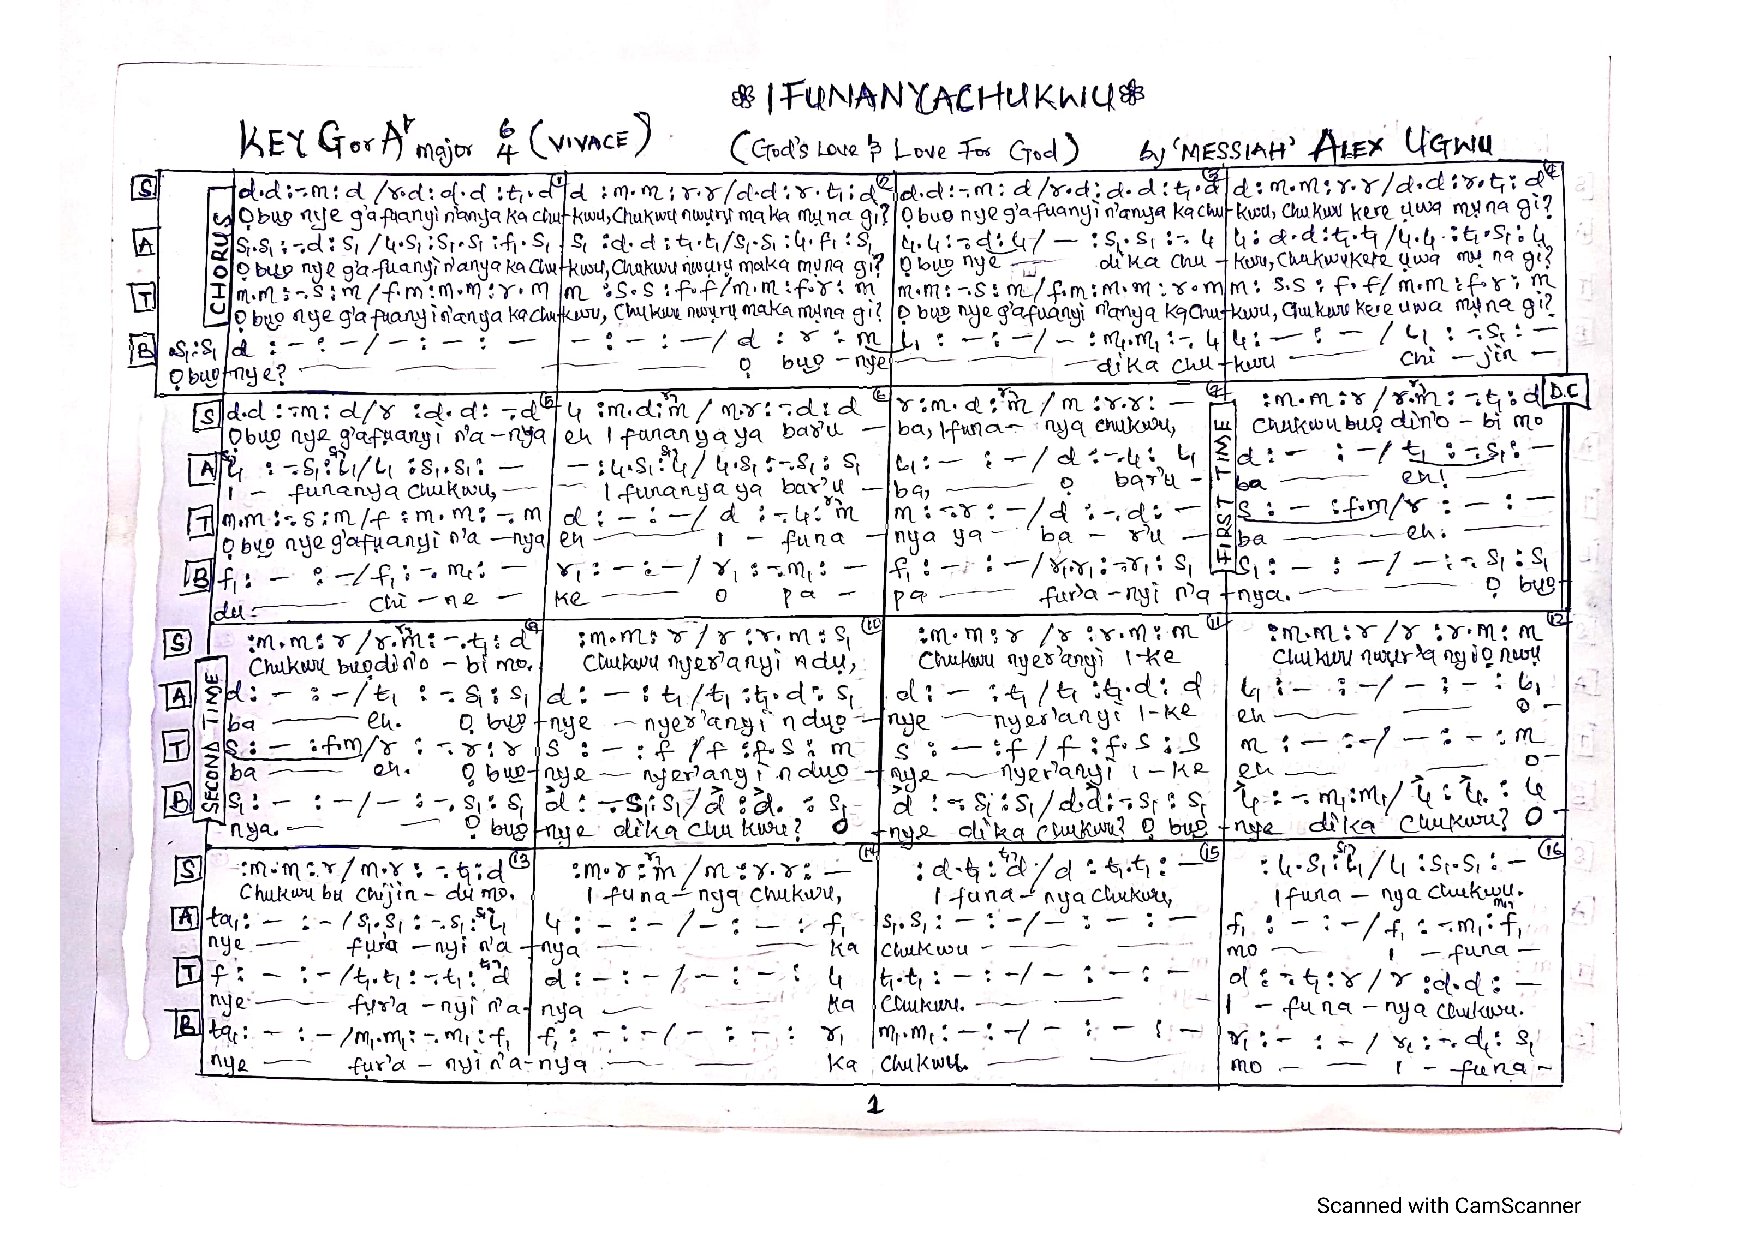 ❋ IFUNANYACHUKWU ❋
KEY G or A♭ major 6/4 (VIVACE) (God's Love & Love For God) by 'MESSIAH' ALEX UGWU
CHORUS
S d.d:-.m:d /r.d:d.d:t₁.d | d :m.m:r.r/d.d:r.t₁:d | d.d:-.m:d/r.d:d.d:t₁.d | d:m.m:r.r/d.d:r.t₁:d
Ọbụọ nye g'afụanyi n'anya ka chu-kwu, Chukwu nwụrụ maka mụ na gị? Ọbụọ nye g'afụanyi n'anya ka chu-kwu, Chukwu kere ụwa mụ na gị?
A s₁.s₁:-.d:s₁/l₁.s₁:s₁.s₁:f₁.s₁ | s₁:d.d:t₁.t₁/s₁.s₁:l₁.f₁:s₁ | l₁.l₁:-.d:l₁/ – :s₁.s₁:-.l₁ | l₁:d.d:t₁.t₁/l₁.l₁:t₁.s₁:l₁
Ọbụọ nye g'a fụanyi n'anya ka chu-kwu, Chukwu nwụrụ maka mụ na gị? Ọbụọ nye di ka chu-kwu, Chukwu kere ụwa mụ na gị?
T m.m:-.s:m/f.m:m.m:r.m | m :s.s:f.f/m.m:f.r:m | m.m:-.s:m/f.m:m.m:r.m | m:s.s:f.f/m.m:f.r:m
Ọbụọ nye g'afụanyi n'anya ka chu-kwu, Chukwu nwụrụ maka mụ na gị? Ọbụọ nye g'afụanyi n'anya ka chu-kwu, Chukwu kere uwa mụ na gị?
B .s₁:s₁ | d : – : – / – : – : – | – : – : – / d : r : m | l₁ : – : – / – :m₁.m₁:-.l₁ | l₁: – : – / l₁ : -.s₁ : –
Ọbụọ-nye? ọ bụọ -nye di ka chu-kwu chi – jin –
S d.d:-.m:d/r :d.d:-.d | l₁ :m.d:m/ m.r:-.d:d | r:m.d:m/m :r.r: – | :m.m:r/r.m:-.t₁:d D.C
Ọbụọ nye g'afụanyi n'a-nya eh I funanya ya bar'u – ba, Ifuna – nya chukwu, Chukwu bụọ din'o – bi mo
A l₁ :-.s₁:l₁/l₁ :s₁.s₁: – | – :l₁.s₁:l₁/ l₁.s₁:-.s₁:s₁ | l₁: – : – / d :-.l₁: l₁ | d: – : – / t₁ : -.s₁: –
I – funanya chukwu, I funanya ya bar'u – ba, ọ bar'u – ba eh!
T m.m:-.s:m/f :m.m:-.m | d : – : – / d :-.l₁:m | m:-.r: – / d :-.d: – | s: – :f.m/r : – : –
Ọbụọ nye g'afụanyi n'a-nya eh I – funa – nya ya – ba – r'u – ba eh.
B f₁: – : – /f₁:-.m₁: – | r₁: – : – / r₁ :-.m₁: – | f₁: – : – /r₁.r₁:-.r₁:s₁ | s₁: – : – / – :-.s₁:s₁
du chi – ne – ke o pa – pa fur'a – nyi n'a-nya. Ọ bụọ
FIRST TIME
SECOND TIME
S :m.m:r/r.m:-.t₁:d | :m.m:r/r :r.m:s₁ | :m.m:r/r :r.m:m | :m.m:r/r :r.m:m
Chukwu bụọ din'o – bi mo. Chukwu nyer'anyi ndụ, Chukwu nyer'anyi I-ke Chukwu nwer'a nyi ọ nwụ
A d: – : – /t₁ :-.s₁:s₁ | d: – :t₁/t₁:t₁.d:s₁ | d: – :t₁/t₁ :t₁.d:d | l₁: – : – / – : – :l₁
ba eh. Ọ bụọ-nye – nyer'anyi ndụọ – nye nyer'anyi I-ke eh O –
T s: – :f.m/r :-.r:r | s : – :f /f :f.s:m | s: – :f/f:f.s:s | m: – : – / – : – :m
ba eh. Ọ bụọ-nye – nyer'anyi ndụọ – nye – nyer'anyi I-ke eh O –
B s₁: – : – / – :-.s₁:s₁ | d:-.s₁:s₁/d:d. :s₁ | d:-.s₁:s₁/d.d:-.s₁:s₁ | l₁:-.m₁:m₁/l₁:l₁. :l₁
-nya. Ọ bụọ-nye di ka chukwu? O -nye di ka chukwu? Ọ bụọ -nye di ka chukwu? O –
S :m.m:r/m.r:-.t₁:d | :m.r:m/m :r.r: – | :d.t₁:d/d :t₁.t₁: – | :l₁.s₁:l₁/l₁ :s₁.s₁: –
Chukwu bu chijin – du mo. I funa – nya chukwu, I funa – nya chukwu, I funa – nya chukwu.
A ta₁: – : – /s₁.s₁:-.s₁:l₁ | l₁: – : – / – : – :f₁ | s₁.s₁: – : – / – : – : – | f₁: – : – /f₁:-.m₁:f₁
nye fur'a – nyi n'a – nya ka chukwu – mo I – funa –
T f: – : – /t₁.t₁:-.t₁:d | d: – : – / – : – :l₁ | t₁.t₁: – : – / – : – : – | d:-.t₁:r/r :d.d: –
nye fụr'a – nyi n'a – nya ka chukwu. I – funa – nya chukwu.
B ta₁: – : – /m₁.m₁:-.m₁:f₁ | f₁: – : – / – : – :r₁ | m₁.m₁: – : – / – : – : – | r₁: – : – / r₁:-.d₁:s₁
nye fụr'a – nyi n'a-nya ka chukwu. mo I – funa –
1
Scanned with CamScanner